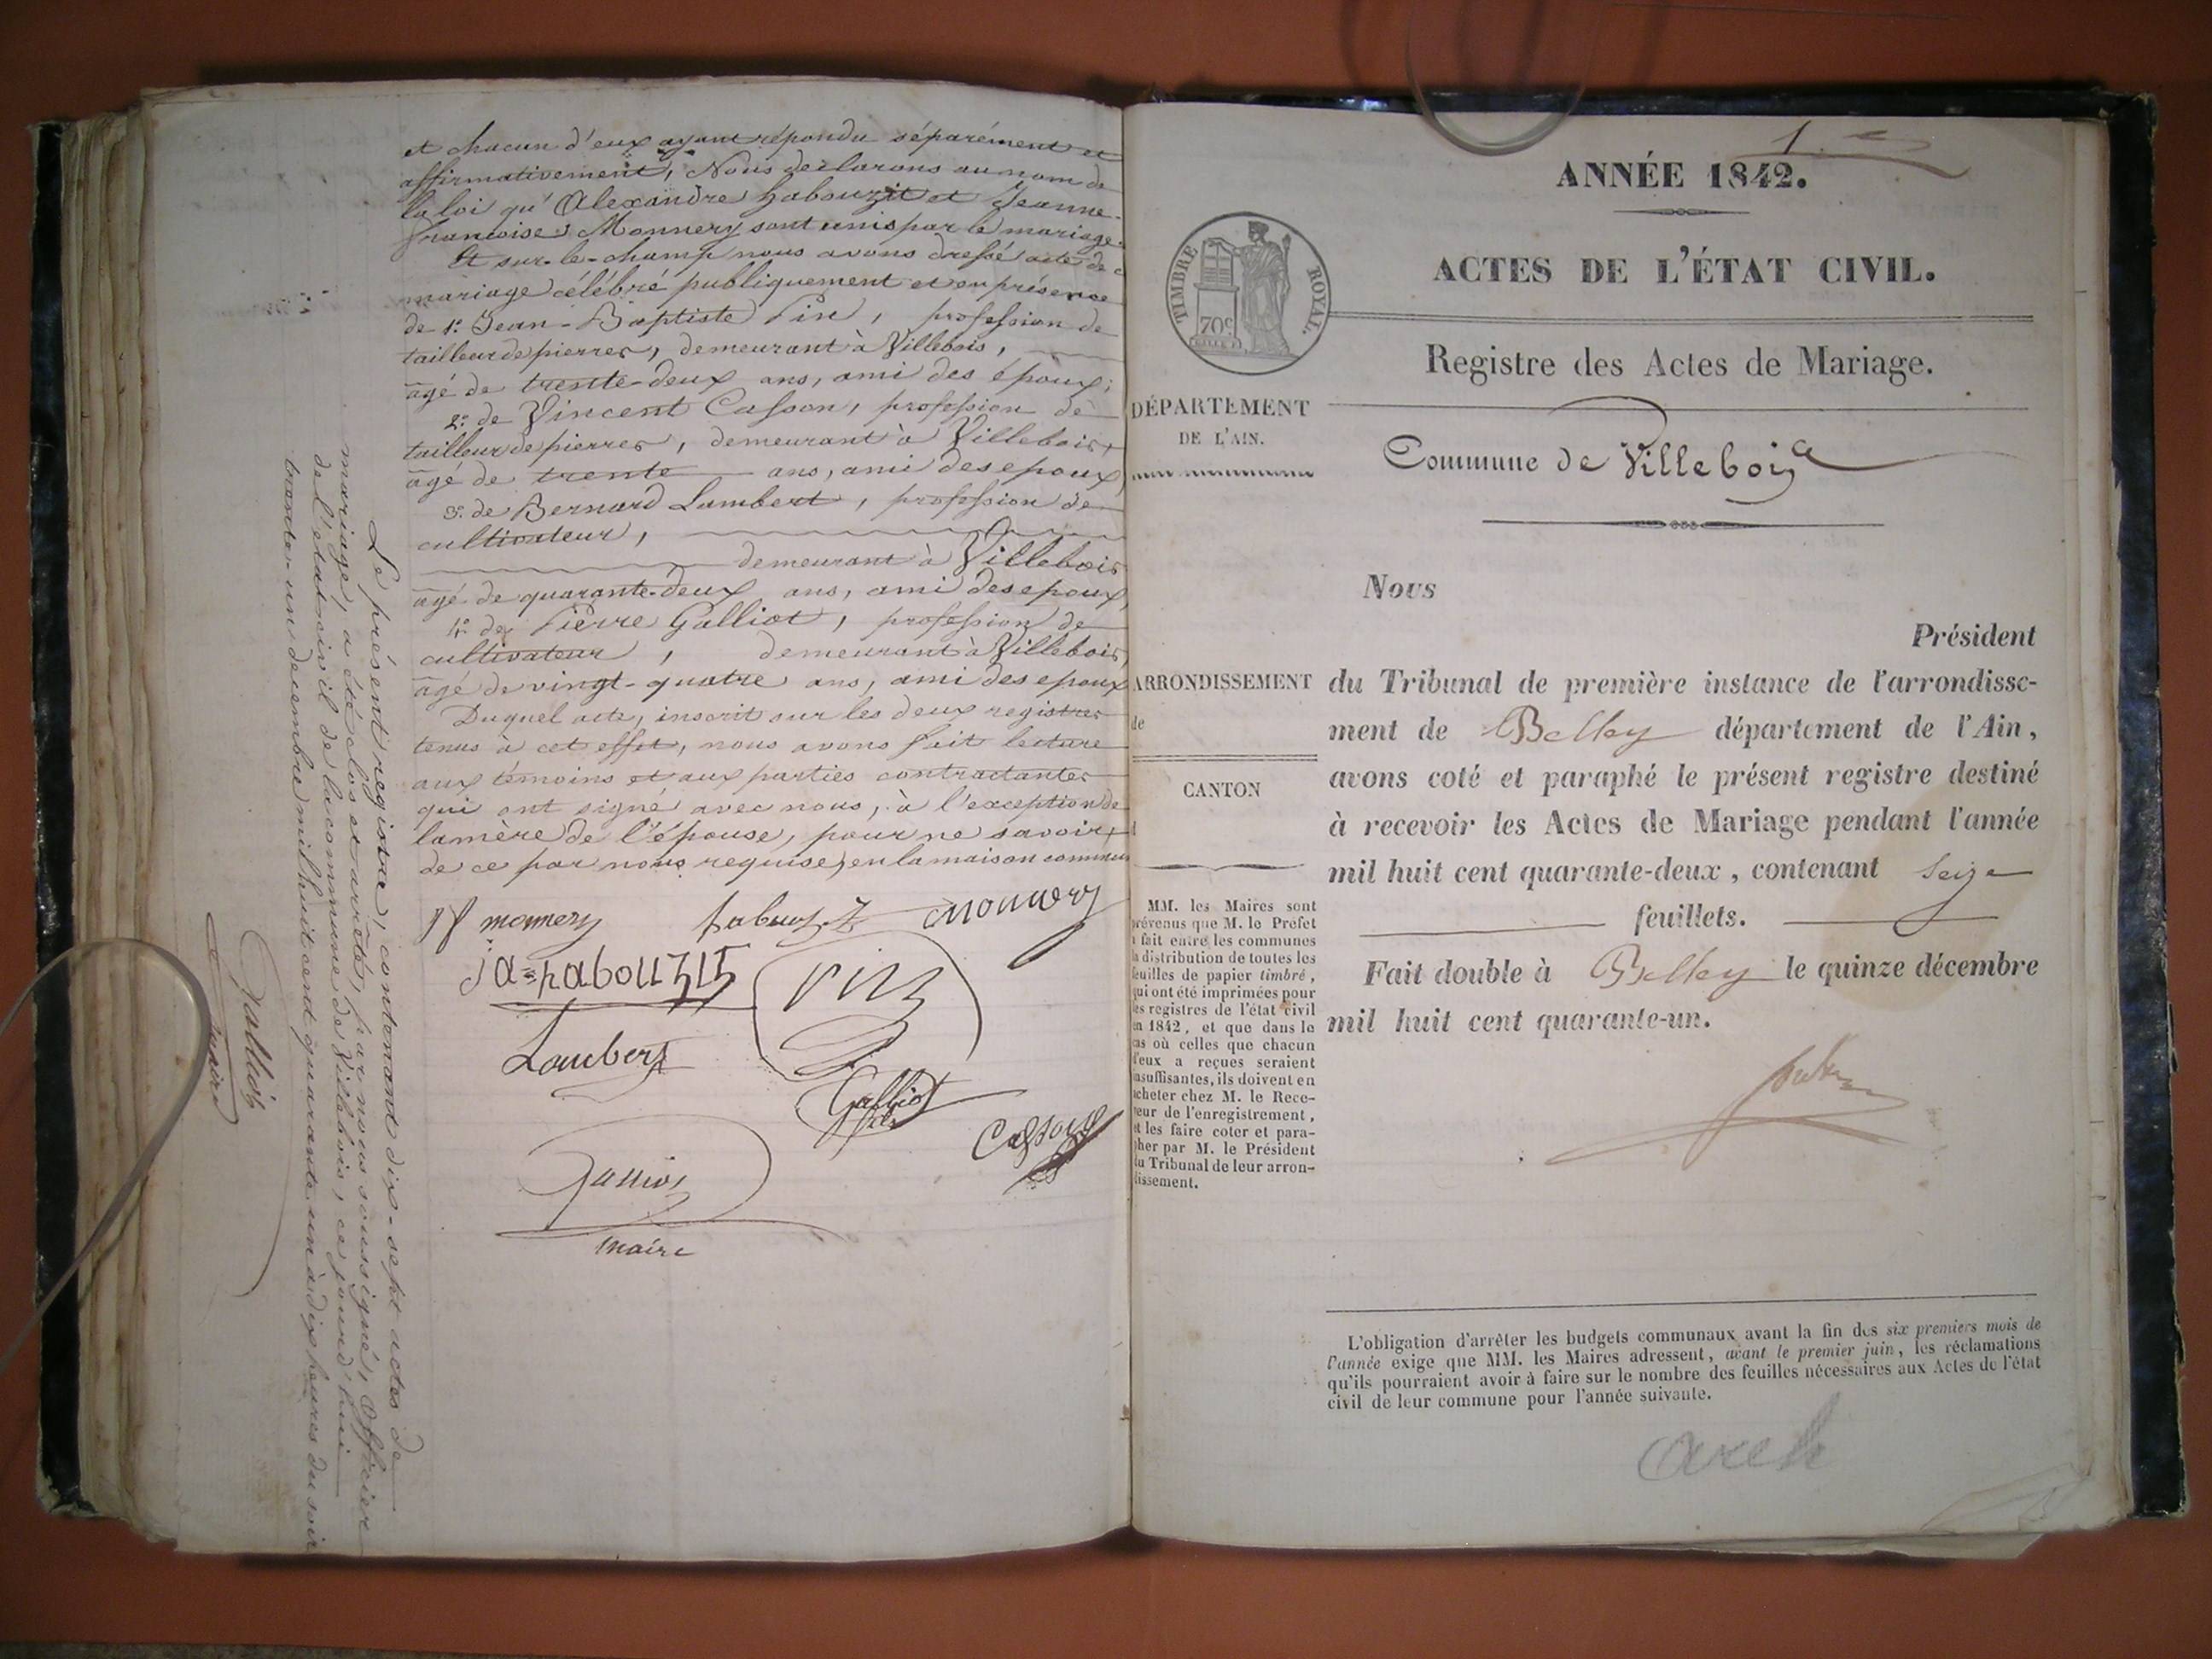 et chacun d'eux ayant répondu séparément et
affirmativement, Nous déclarons au nom de
la loi qu'Alexandre habouzit et Jeanne-
françoise Monnery sont unis par le mariage.
Et sur-le-champ nous avons dressé acte de
mariage célébré publiquement et en présence
de 1° Jean-Baptiste Pin, profession de
tailleur de pierres, demeurant à Villebois,
âgé de trente-deux ans, ami des époux;
2° de Vincent Casson, profession de
tailleur de pierres, demeurant à Villebois,
âgé de trente ans, ami des époux
3° de Bernard Lambert, profession de
cultivateur,
demeurant à Villebois
âgé de quarante-deux ans, ami des époux,
4° de Pierre Galliot, profession de
cultivateur, demeurant à Villebois,
âgé de vingt-quatre ans, ami des époux
Duquel acte, inscrit sur les deux registres
tenus à cet effet, nous avons fait lecture
aux témoins et aux parties contractantes
qui ont signé avec nous, à l'exception de
la mère de l'épouse, pour ne savoir,
de ce par nous requise, en la maison commune
jf monnery habouzit monnery
ja=habouzit Pin
Lambert
Galliot
fils
Casson
Galliot
maire
Le présent registre, contenant dix-sept actes de
mariage, a été clos et arrêté, par nous soussigné, Officier
de l'état civil de la commune de Villebois, ce jourd'hui
trente-un décembre mil huit cent quarante-un à dix heures du soir
Galliot
maire
1.er
ANNÉE 1842.
ACTES DE L'ÉTAT CIVIL.
TIMBRE ROYAL.
70c
Registre des Actes de Mariage.
DÉPARTEMENT
DE L'AIN.
Commune de Villebois
Nous
Président
ARRONDISSEMENT
de
CANTON
du Tribunal de première instance de l'arrondisse-
ment de Belley département de l'Ain,
avons coté et paraphé le présent registre destiné
à recevoir les Actes de Mariage pendant l'année
mil huit cent quarante-deux, contenant seize
feuillets.
Fait double à Belley le quinze décembre
mil huit cent quarante-un.
MM. les Maires sont
prévenus que M. le Préfet
a fait entre les communes
la distribution de toutes les
feuilles de papier timbré,
qui ont été imprimées pour
les registres de l'état civil
en 1842, et que dans le
cas où celles que chacun
d'eux a reçues seraient
insuffisantes, ils doivent en
acheter chez M. le Rece-
veur de l'enregistrement,
et les faire coter et para-
pher par M. le Président
du Tribunal de leur arron-
dissement.
L'obligation d'arrêter les budgets communaux avant la fin des six premiers mois de
l'année exige que MM. les Maires adressent, avant le premier juin, les réclamations
qu'ils pourraient avoir à faire sur le nombre des feuilles nécessaires aux Actes de l'état
civil de leur commune pour l'année suivante.